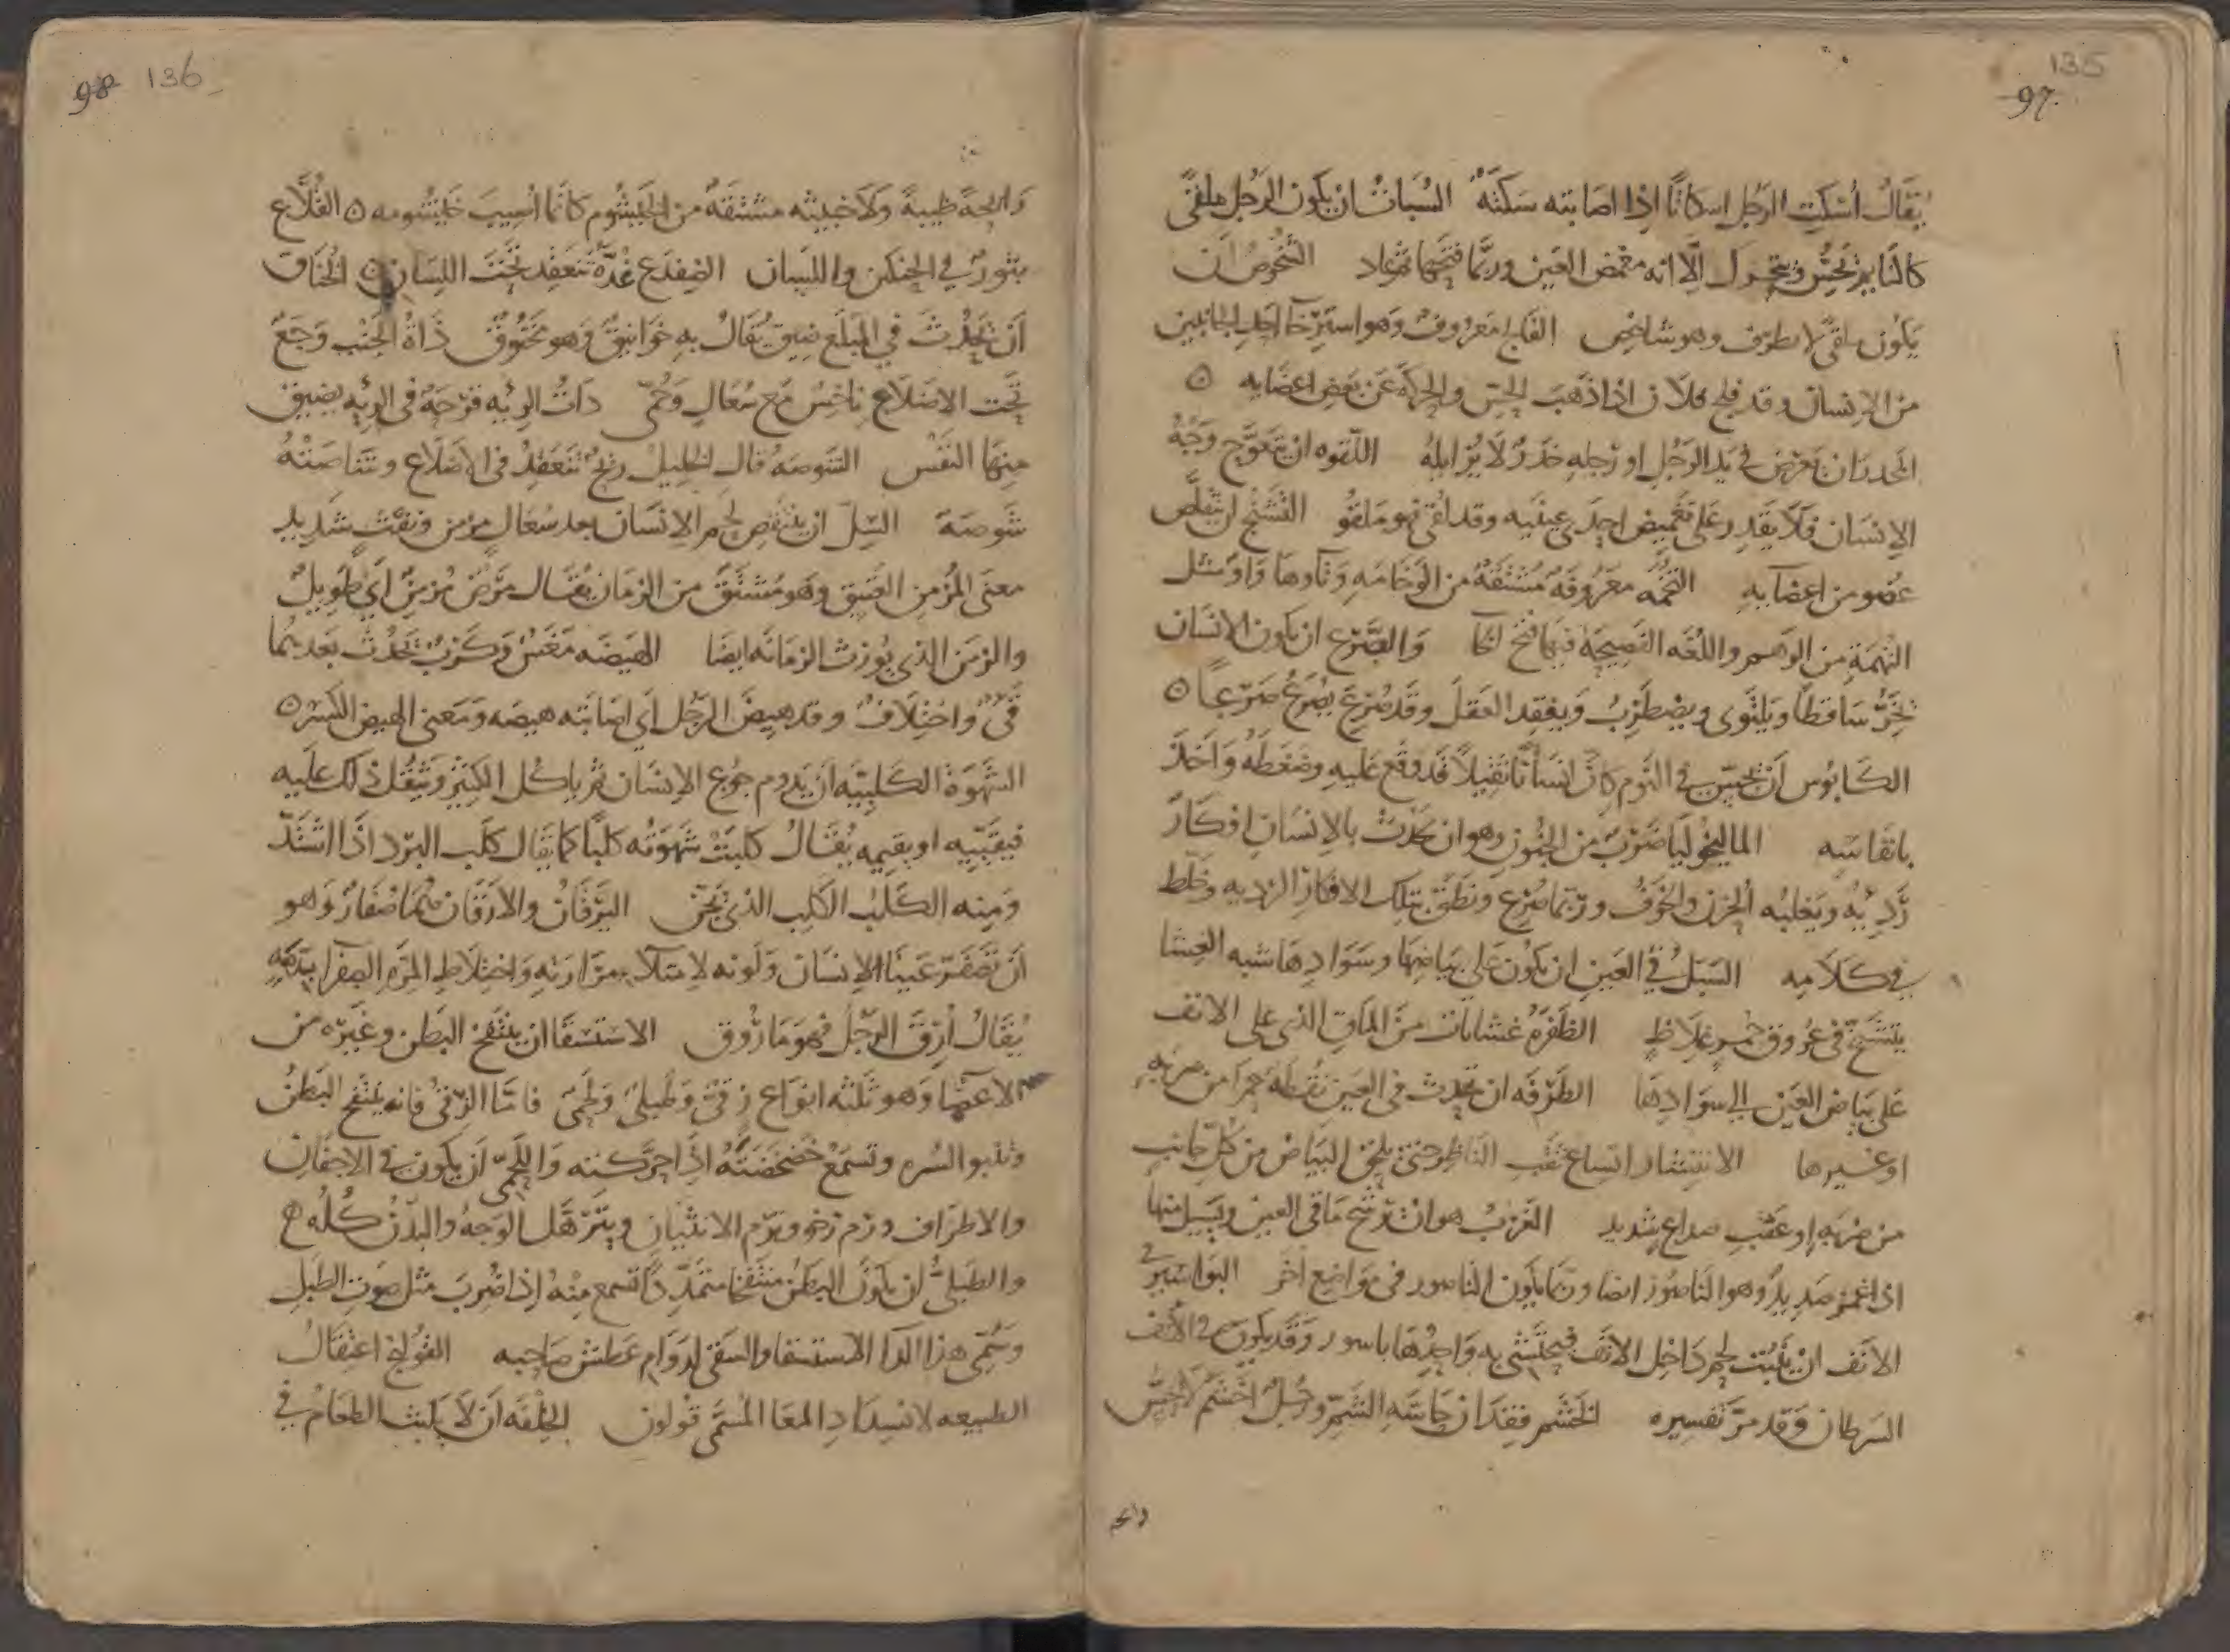 135
97
يُقَالُ أُسْكِتَ الرَجُل اسكاتًا اِذا اصَابته سَكتَةٌ السُبَاتُ ان يكون الرَجُل ملقىً
كالنايم يحِسُّ ويتحرك اِلّا انه مغمض العَين ورُبّما فتحهما ثم عاد الشُخُوصُ ان
يكُون ملقىً لا يطرف وهو شاخِص الفالِج مَعرُوفٌ وَهو استرخآ احَدِ الجانبين
من الاِنسان وقد فلج فلان اذا ذَهبَ الحِسّ والحركة عَن بَعض اعضَايه ه
الخدر ان يَعرض في يَد الرَجُلِ او رجلهِ خدَرٌ لَا يُزايلهُ اللّقوه ان يَتعَوَّج وَجْهُ
الاِنسَان فلَا يَقدِر عَلى تَغْميض اِحدَى عينَيه وقد لُقى فهو مَلقُو التشنّج ان يتقلّص
عُضو من اعضَايهِ التُخَمَه مَعرُوفَهٌ مُشتقَةٌ من الوَخامَهِ وَتاوها وَاوٌ مثل
التُهَمَةِ من الوَهمِ واللُغَه الفَصِيحَة فيهَا فتح الخآ وَالصَّرَع ان يكون الانسَان
يَخِرُّ سَاقطاً ويَلتَوى ويضْطَرِبُ وَيفقِد العَقلَ وقَد صُرِعَ يُصْرَعُ صَرَعاً ه
الكابُوس اَنْ يُحسّ في النوم كانّ انسَانًا ثقِيلاً قد وقع عَليهِ وضَغَطَهُ وَاَخَذَ
بانفاسِه الماليخُوليَا ضَرْبٌ من الجُنون وهو ان يَحدُثَ بالاِنسَان افكارٌ
رَدِيَّه ويَغلِبُه الحزن والخَوفُ ورُبّما صُرِعَ ونَطقَ بتلكَ الافكار الرديه وخلّط
في كلَامِه السَبَلُ في العَينِ ان يكُون عَلى بيَاضِها وسَوَادِها شبه الغِشا
ينتَسج في عُروق حُمرٍ غِلاظٍ الظَفَرَةُ غشاياتٌ منَ المَاق الذي على الانف
عَلى بيَاض العَين الى سوَادِهَا الطَرفَه ان يَحدث فى العَين نُقطَه حَمرآ من ضربهٍ
او غيرها الانتِشار اتساع ثقبِ الناظر حَتّى يلحق البيَاض من كلّ جانبٍ
من ضربهٍ او عَقبِ صداع شديد الغَربُ هو ان ترشح مَاقى العين ويسيل منها
اذا غُمز صَدِيدٌ وهو الناصُور ايضا ورُبّما يكون الناصور فى مَوَاضِع اُخَر البوَاسِير في
الانَف ان يَنبُت لحم دَاخِل الانَف فيحتشى به وَاحِدُهَا باسور وقد يكون في الأنف
السرطان وَقد مَرّ تفسِيره الخَشم فقدَان حَاسّهِ الشَمِّ ورجُلٌ اخْشَمُ لَا يَحِسّ
رائحـ
98 136
رَايحَةً طَيبةً وَلَا خبيثه مشتقَةٌ من الخَيشُوم كانّما اُصِيبَ خَيشومه ه القُلَّاع
بثورٌ في الحنكِ واللِسان الضِفدَع غُدَّةٌ تَنعَقد تحَتَ اللِسَان ه الخُنَاق
اَن يَحْدُثَ في المَبلَعِ ضِيقٌ يُقَالُ بهِ خَوَانيقٌ وَهو مَخنُوقٌ ذَاتُ الجَنْب وَجَعٌ
تحَت الاضلَاعِ ناخِسٌ مَع سُعَالٍ وَحُمَّى ذاتُ الرِيَه قَرْحَةٌ فى الرِيَه يضِيق
مِنهَا النَفَسْ الشوصَة قال الخليل رِيحٌ تَنعَقِدُ فى الاضلَاع وشَاصَتْهُ
شَوصَةٌ السِلّ ان ينتقِصَ لحَم الاِنسَان بعد سُعَالٍ مزمن ونفثٍ شديد
معنَى المُزمن العَتِيق وهو مُشتَقٌ من الزمَان يُقال مَرَضٌ مُزمِنٌ اَي طَوِيلٌ
والزمن الذي يُورِث الزمَانه ايضا الهَيضَه مَغسٌ وَكربٌ يَحدُثُ بَعدَهُما
قَيءٌ واختِلافٌ وقد هِيضَ الرَجُل اَي اصَابَته هيضَه ومَعنى الهيض الكَسر ه
الشَهوَة الكَلبِيّه ان يَدوم جوع الاِنسَان ثمّ ياكل الكَثِير ويَثقُل ذلكَ عَليه
فيقيّيه او يقيمه يُقَالُ كلِبَتْ شَهوَتُه كلَبًا كما يقال كلَب البرد اذا اشتَدّ
ومِنه الكَلبُ الكلِب الذي يُجنّ اليَرَقانُ والاَرَقَان هُما صَفارٌ وَهو
اَن تصْفَرّ عَينَا الاِنسَان وَلَونه لاِمتلآ مَرارَتهِ وَاختِلاطِ المرّهِ الصَفرآ بدَمهِ
يُقَالُ اُرِقَ الرَجُلُ فهوَ مَارُوق الاستسقا ان ينتفِخ البَطن وغَيره من
الاعضا وَهو ثلثه انوَاع زقيٌ وَطَبليٌ ولَحميٌ فامّا الزِقيُّ فانه يَنتفخ البَطنُ
وتنبو السُره وتسمَعُ خَضخَضَتَهُ اِذا حَرَّكته وَاللَحمِيّ اَن يكون في الاجفَانِ
والاطرَاف وَرَم رَخو ويَرِم الانثيَان ويترَهّل الوَجهُ والبَدَن كُلّه
والطبليّ ان يكُون البَطنُ منتَفِخا متمَدّدًا تسمع مِنهُ اِذا ضُرِبَ مثل صَوتِ الطَبلِ
وَسُمّي هذا الدآ الاستسقا والسَقى لِدَوَام عَطش صَاحِبه القُولنج اعتِقَالُ
الطبيعه لانسِدَادِ المعَا المُسَمَّى قُولون الخِلْفَه اَن لَا يَلبث الطعَامُ في